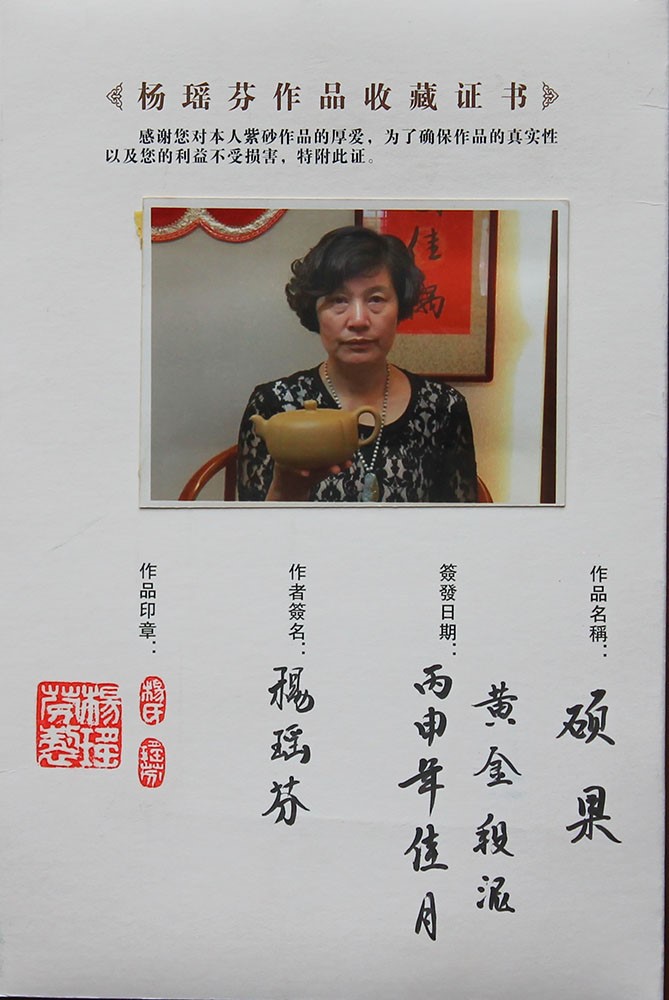 杨瑶芬作品收藏证书
感谢您对本人紫砂作品的厚爱，为了确保作品的真实性
以及您的利益不受损害，特附此证。
佳
作品名稱：
硕果
黄金段泥
簽發日期：
丙申年佳月
作者簽名：
楊瑶芬
作品印章：
楊氏
瑶芬
楊瑶
芬製